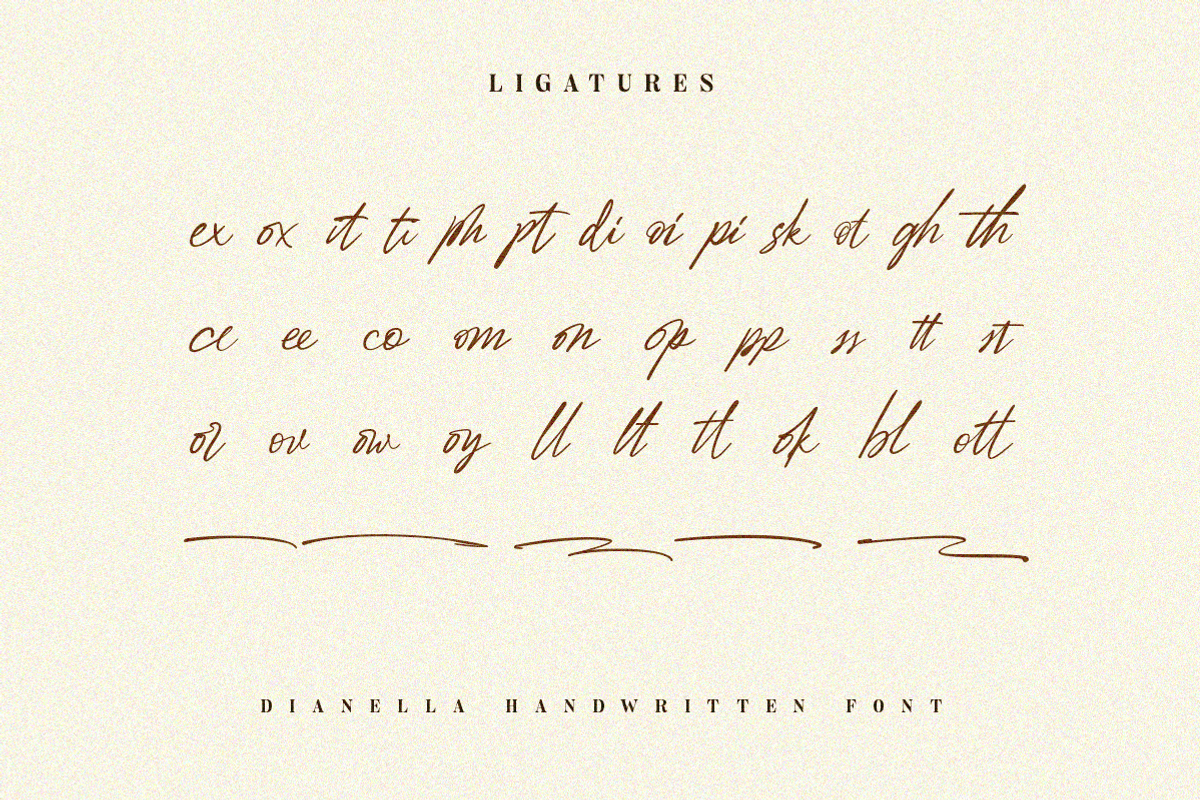 LIGATURES
ex ox it ti ph pt di oi pi sk ot gh th
ce ee co om on op pp ss tt st
or ov ow oy ll lt tl ok bl ott
DIANELLA HANDWRITTEN FONT